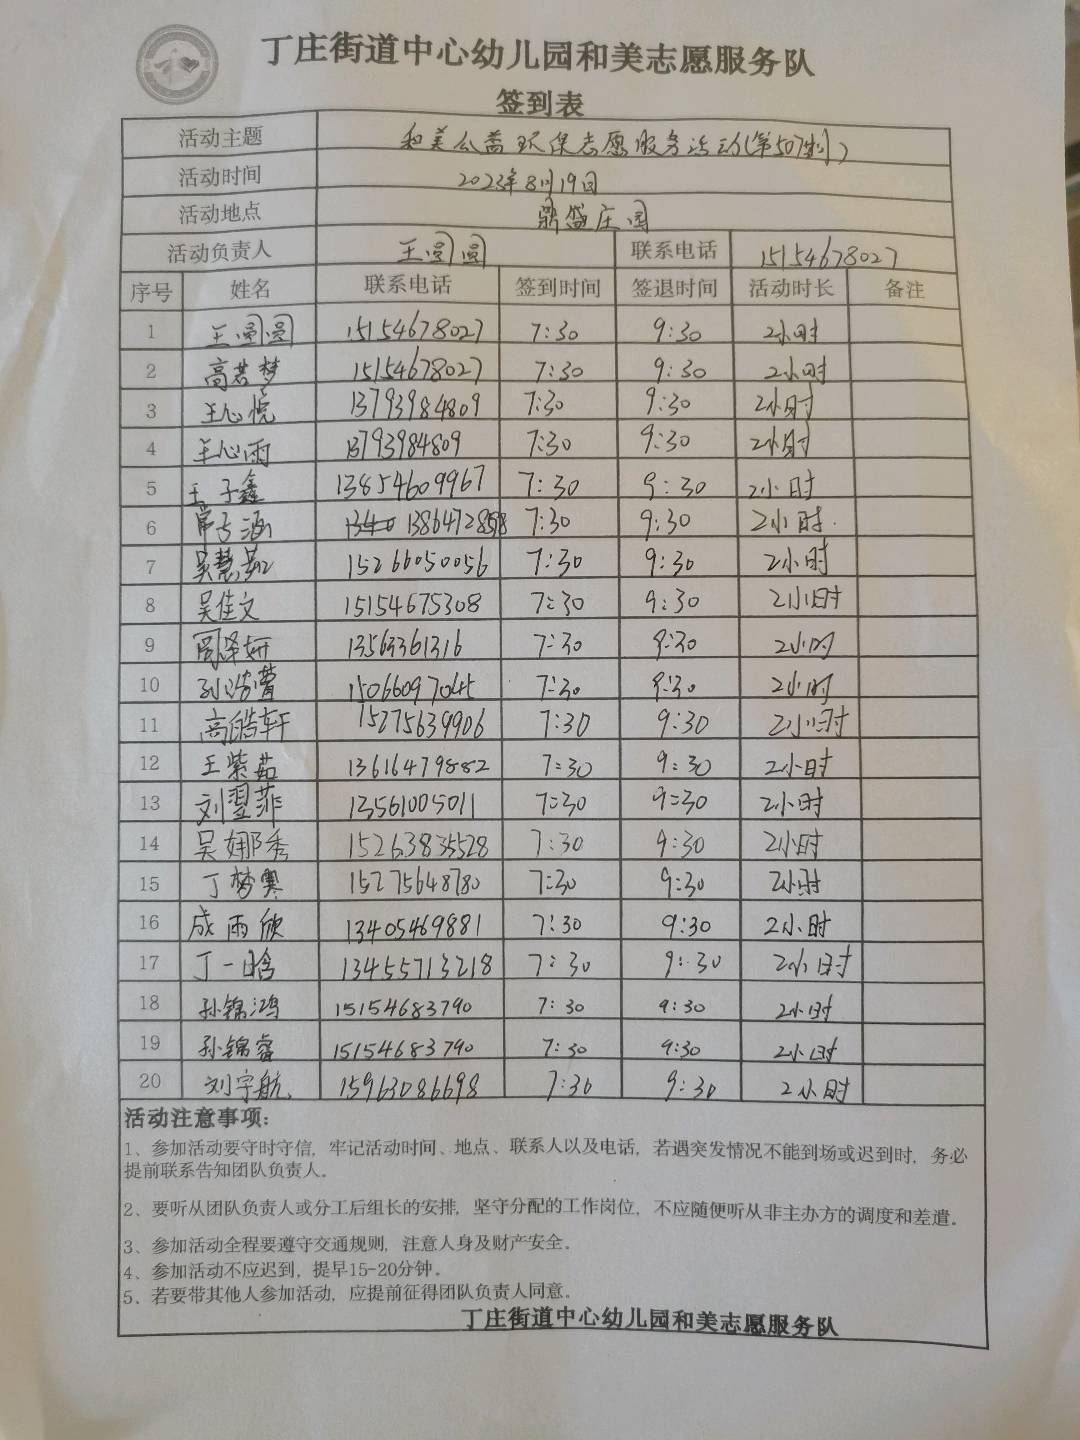 丁庄街道中心幼儿园和美志愿服务队
签到表
活动主题 和美公益环保志愿服务活动(第507次)
活动时间 2023年8月19日
活动地点 鼎盛庄园
活动负责人 王圆圆 联系电话 15154678027
序号 姓名 联系电话 签到时间 签退时间 活动时长 备注
1 王圆圆 15154678027 7:30 9:30 2小时
2 高若梦 15154678027 7:30 9:30 2小时
3 王心悦 13793984809 7:30 9:30 2小时
4 王心雨 13793984809 7:30 9:30 2小时
5 王子鑫 13854609967 7:30 9:30 2小时
6 涵 7:30 9:30 2小时
7 吴慧 15266050056 7:30 9:30 2小时
8 吴佳文 15154675308 7:30 9:30 2小时
9 周泽妍 13563361316 7:30 9:30 2小时
10 孙浩 15066097045 7:30 9:30 2小时
11 高皓轩 15275639906 7:30 9:30 2小时
12 王紫茹 13616479882 7:30 9:30 2小时
13 刘翌菲 13561005011 7:30 9:30 2小时
14 吴娜秀 15263835528 7:30 9:30 2小时
15 丁梦寒 15275648780 7:30 9:30 2小时
16 成雨欣 13405469881 7:30 9:30 2小时
17 丁一晗 13455713218 7:30 9:30 2小时
18 孙锦鸿 15154683790 7:30 9:30 2小时
19 孙锦睿 15154683790 7:30 9:30 2小时
20 刘宇航 15963086698 7:30 9:30 2小时
活动注意事项:
1、参加活动要守时守信，牢记活动时间、地点、联系人以及电话，若遇突发情况不能到场或迟到时，务必
提前联系告知团队负责人。
2、要听从团队负责人或分工后组长的安排，坚守分配的工作岗位，不应随便听从非主办方的调度和差遣。
3、参加活动全程要遵守交通规则，注意人身及财产安全。
4、参加活动不应迟到，提早15-20分钟。
5、若要带其他人参加活动，应提前征得团队负责人同意。
丁庄街道中心幼儿园和美志愿服务队